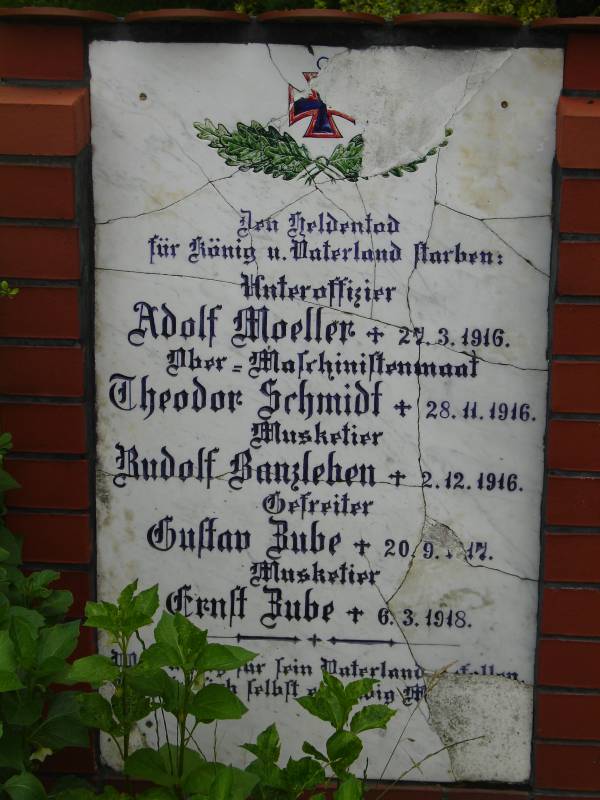 Den Heldentod
für König u. Vaterland starben:
Unteroffizier
Adolf Moeller + 27.3.1916.
Ober-Maschinistenmaat
Theodor Schmidt + 28.11.1916.
Musketier
Rudolf Banzleben + 2.12.1916.
Gefreiter
Gustav Zube + 20.9. 17.
Musketier
Ernst Zube + 6.3.1918.
für sein Vaterland
selbst